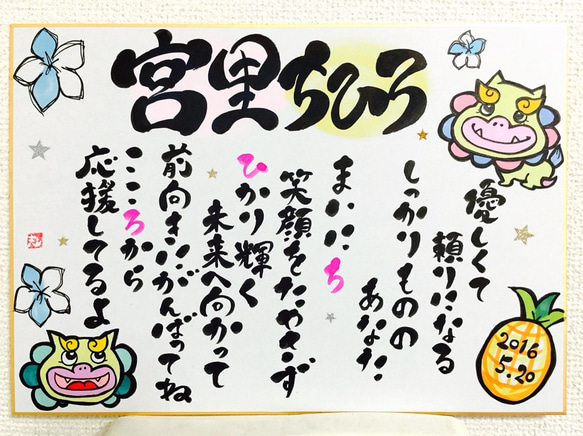 宮里ちひろ
優しくて
頼りになる
しっかりものの
あなた
まいにち
笑顔をたやさず
ひかり輝く
未来へ向かって
前向きにがんばってね
こころから
応援してるよ
2016
5.20